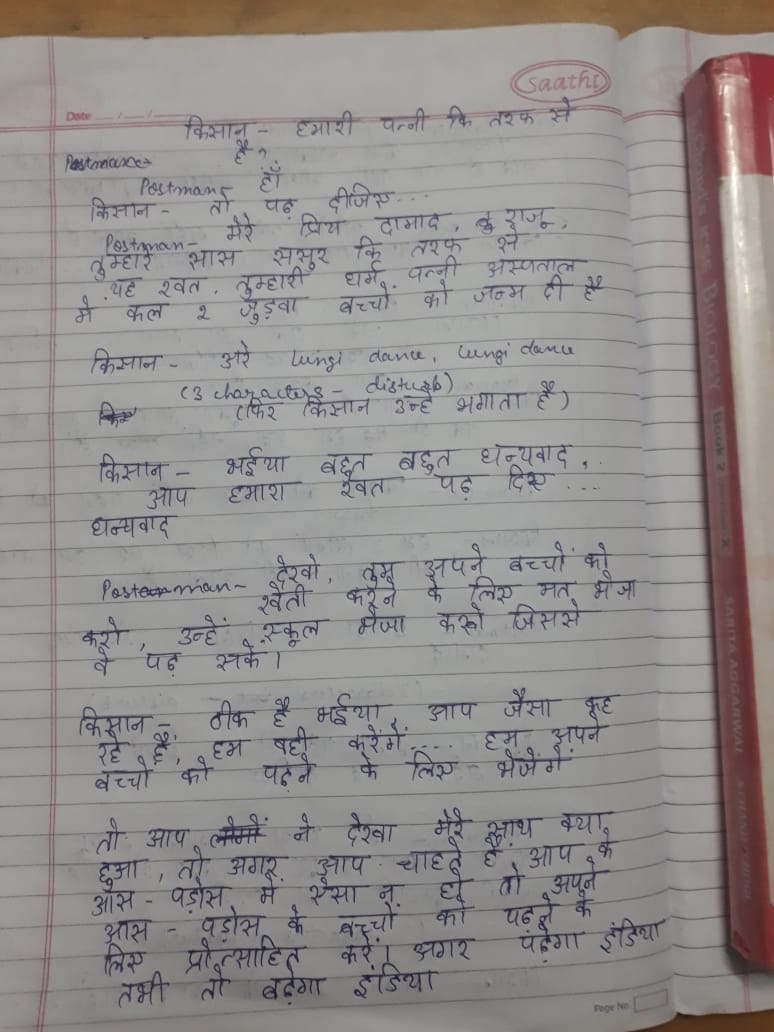 Saathi
Date ___/___/___
किसान - हमारी पत्नी कि तरफ से
है?
Postman - हाँ
किसान - तो पढ़ दीजिए...
Postman - मेरे प्रिय दामाद, राजू,
तुम्हारे सास ससुर कि तरफ से
यह खत, तुम्हारी धर्म पत्नी अस्पताल
मे कल २ जुड़वा बच्चो को जन्म दी है
किसान - अरे lungi dance, lungi dance
(3 characters - disturb)
(फिर किसान उन्हे भगाता है)
किसान - भईया बहुत बहुत धन्यवाद,
आप हमारा खत पढ़ दिए ....
धन्यवाद
Postman - देखो, तुम अपने बच्चों को
खेती करने के लिए मत भेजा
करो, उन्हें स्कूल भेजा करो जिससे
वे पढ़ सकें।
किसान - ठीक है भईया, आप जैसा कह
रहे हैं, हम वही करेंगें .... हम अपने
बच्चो को पढ़ने के लिए भेंजेंगे
तो आप ने देखा मेरे साथ क्या
हुआ, तो अगर आप चाहते है आप के
आस - पड़ोस मे ऐसा न हो तो अपने
आस - पड़ोस के बच्चो को पढ़ने के
लिए प्रोत्साहित करें। अगर पढ़ेगा इंडिया
तभी तो बढ़ेगा इंडिया
Page No.
BIOLOGY Book 2
SARITA AGGARWAL